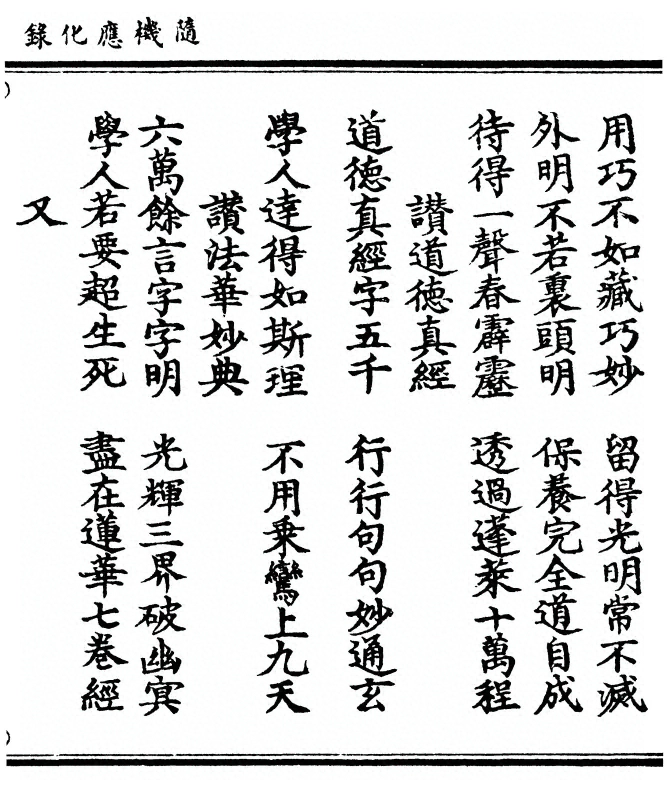 隨機應化錄
用巧不如藏巧妙　留得光明常不滅
外明不若裏頭明　保養完全道自成
待得一聲春霹靂　透過蓬萊十萬程
讚道德真經
道德真經字五千　行行句句妙通玄
學人達得如斯理　不用乘鸞上九天
讚法華妙典
六萬餘言字字明　光輝三界破幽冥
學人若要超生死　盡在蓮華七卷經
又